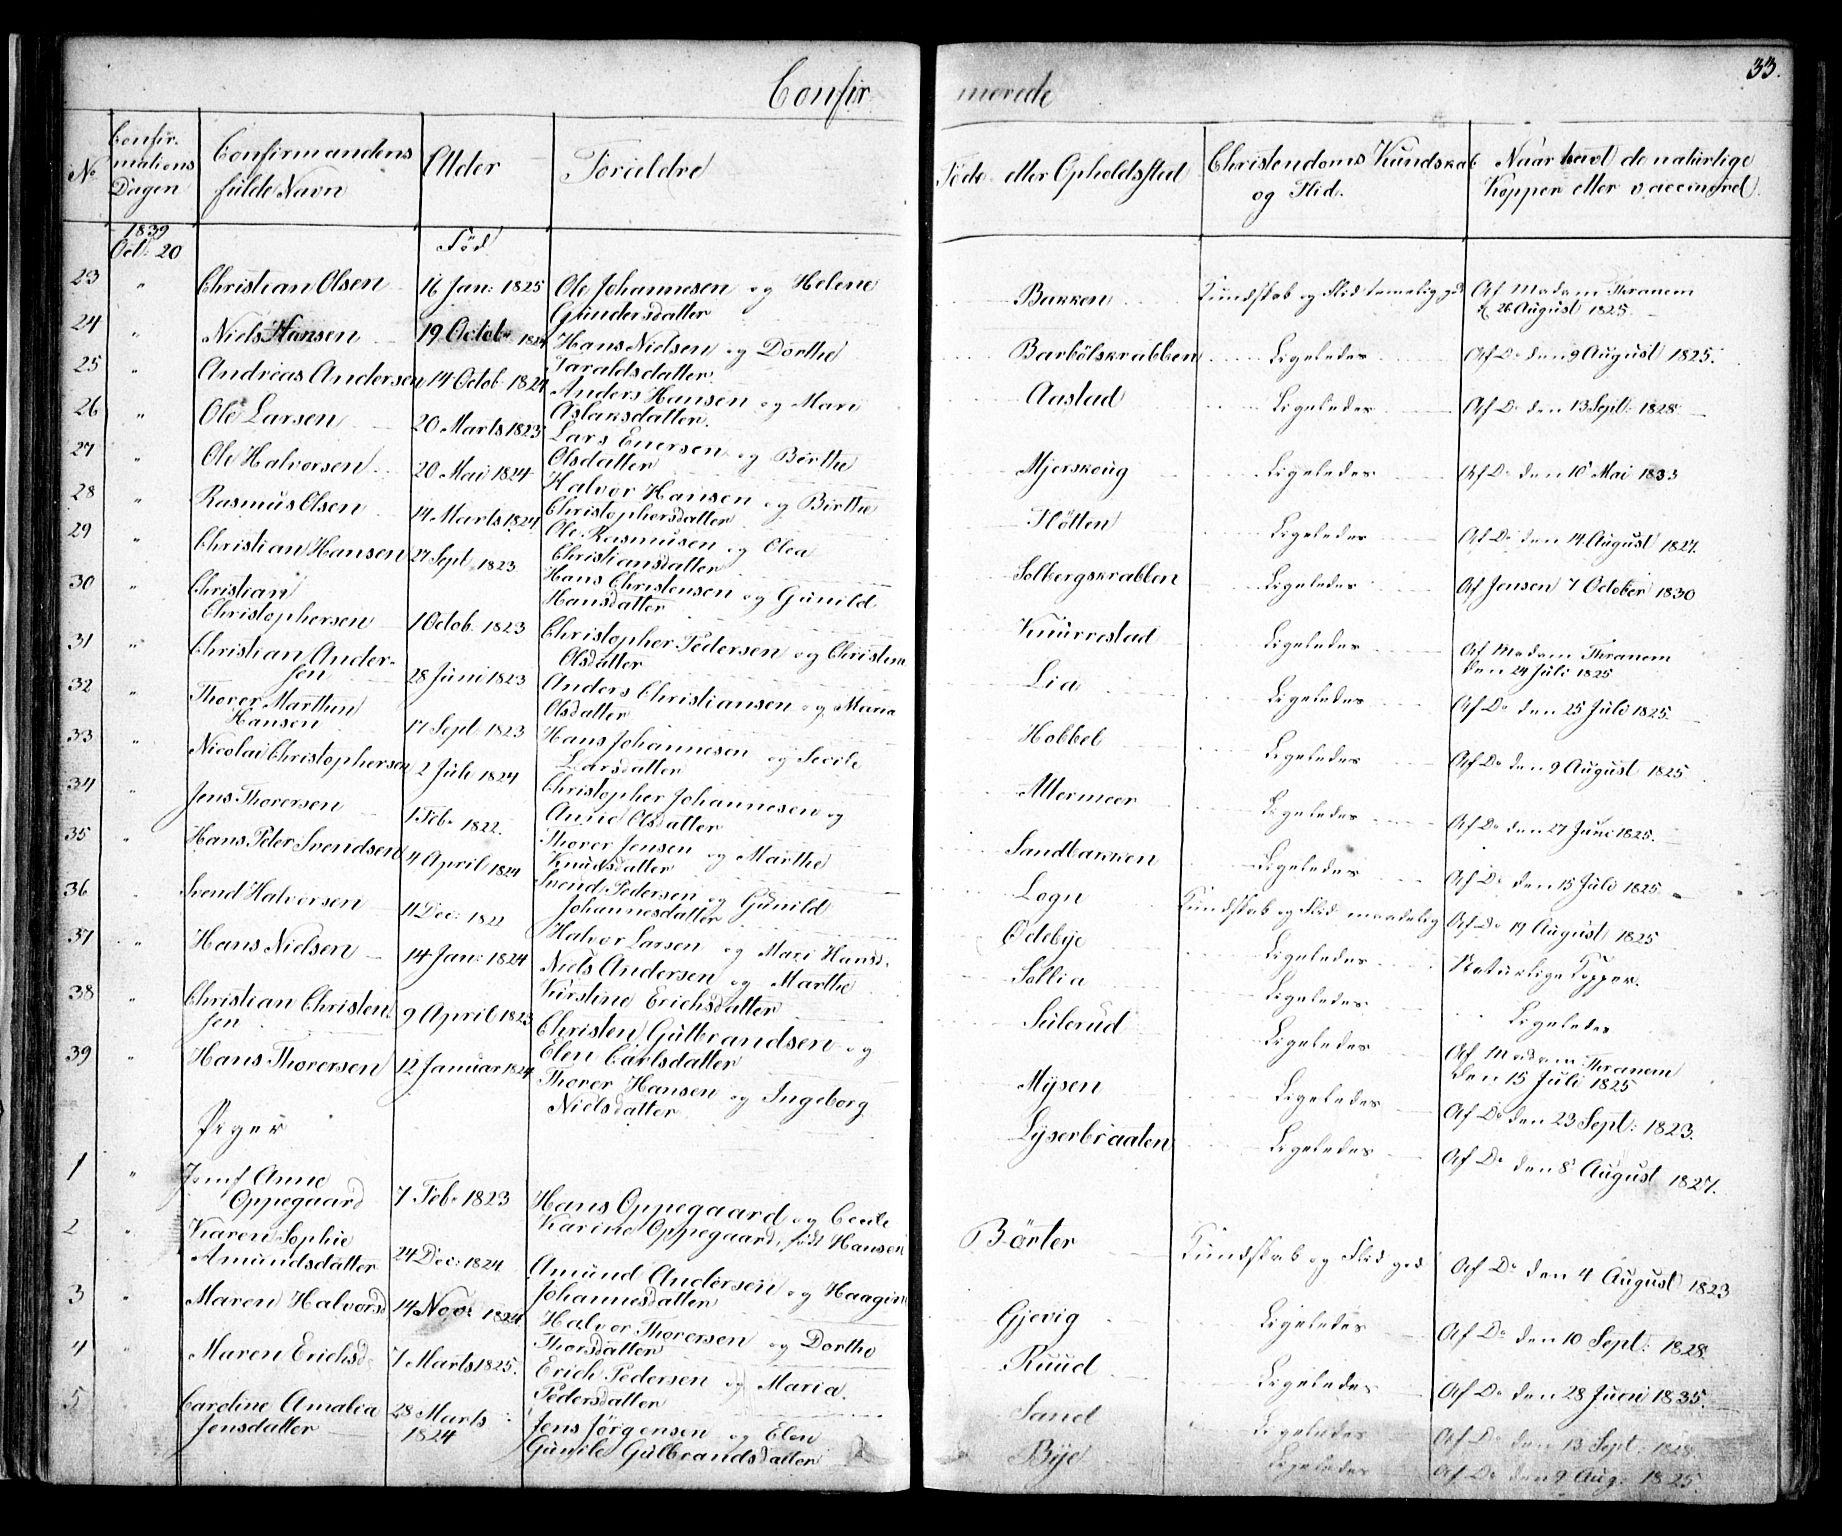 33.
Confirmerede
No
Confirmations Dagen
Confirmandens fulde Navn
Alder
Forældre
Føde eller Opholdssted
Christendoms Kundskab og Flid.
Naar havt de naturlige Kopper eller vaccinered.
1839
Oct: 20
Fød
23 " Christian Olsen 16 Jan: 1825 Ole Johannesen og Helene Gundersdatter Bakken Kundskab og Flid temelig god Af Madam Thranem d 26 August 1825
24 " Niels Hansen 19 Octob: 1824 Hans Nielsen og Dorthe Taraldsdatter Barbølskrabben Ligeledes Af Do den 9 August 1825.
25 " Andreas Andersen 14 Octob 1824 Anders Hansen og Mari Aslaksdatter. Aastad Ligeledes Af Do den 13 Sept: 1828
26 " Ole Larsen 20 Marts 1823 Lars Enersen og Birthe Olsdatter Mjerskoug Ligeledes Af Do den 10 Mai 1833
27 " Ole Halvorsen 20 Mai 1824 Halvor Hansen og Birthe Christophersdatter Fløtten Ligeledes Af Do den 14 August 1827.
28 " Rasmus Olsen 14 Marts 1824 Ole Rasmusen og Olea Christiansdatter Solbergskrabben Ligeledes Af Jensen 7 October 1830
29 " Christian Hansen 27 Sept 1823 Hans Christensen og Gunild Hansdatter Knurrestad Ligeledes Af Madam Thranem den 24 Juli 1825
30 " Christian Christophersen 1 Octob 1823 Christopher Pedersen og Christine Olsdatter Lia Ligeledes Af Do den 25 Juli 1825.
31 " Christian Andersen 28 Juni 1823 Anders Christiansen og Maria Olsdatter Hobbel Ligeledes Af Do den 9 August 1825
32 " Thorer Marthin Hansen 17 Sept 1823 Hans Johannesen og Secile Larsdatter Altermeer Ligeledes Af Do den 27 Juni 1825.
33 " Nicolai Christophersen 2 Juli 1824 Christopher Johannesen og Anne Olsdatter Sandbakken Ligeledes Af Do den 15 Juli 1825
34 " Jens Thorersen 1 Feb: 1822. Thorer Jensen og Marthe Knudsdatter Logn Kundskab og Flid maadelig Af Do 19 August 1825
35 " Hans Peter Svendsen 4 April 1824 Svend Pedersen og Gunild Johannesdatter Ødebye Ligeledes Naturlige Kopper.
36 Svend Halvorsen 11 Dec: 1822 Halvor Larsen og Mari Hansd. Sollia Ligeledes Ligeledes
37 " Hans Nielsen 14 Jan: 1824 Niels Andersen og Marthe Kirstine Erichsdatter Seilerud Ligeledes Af Madam Thranem den 15 Juli 1825
38 " Christian Christensen 9 April 1823 Christen Gulbrandsen og Elen Carlsdatter Mysen Ligeledes Af Do den 23 Sept: 1823.
39 " Hans Thorersen 12 Januar 1824 Thorer Hansen og Ingeborg Nielsdatter Lyserbraaten Ligeledes Af Do den 8 August 1827.
Piger
1 " Jomf Anne Oppegaard 7 Feb: 1823 Hans Oppegaard og Cecile Karine Oppegaard, født Hansen Børter Kundskab og Flid god Af Do den 4 August 1823
2 " Karen Sophie Amundsdatter 24 Dec: 1824 Amund Andersen og Haagine Johannesdatter Gjevig Ligeledes Af Do den 10 Sept: 1828.
3 " Maren Halvorsd 14 Nov: 1824 Halvor Thorersen og Dorthe Thorsdatter Ruud Ligeledes Af Do den 28 Juni 1835.
4 " Maren Erichsd: 7 Marts 1825. Erich Pedersen og Maria Pedersdatter Sand Ligeledes Af Do den 13 Sept: 1828.
5 Caroline Amalia Jensdatter 28 Marts 1824 Jens Jørgensen og Elen Gunile Gulbrandsdatter Bye Ligeledes Af Do den 9 Aug: 1825.